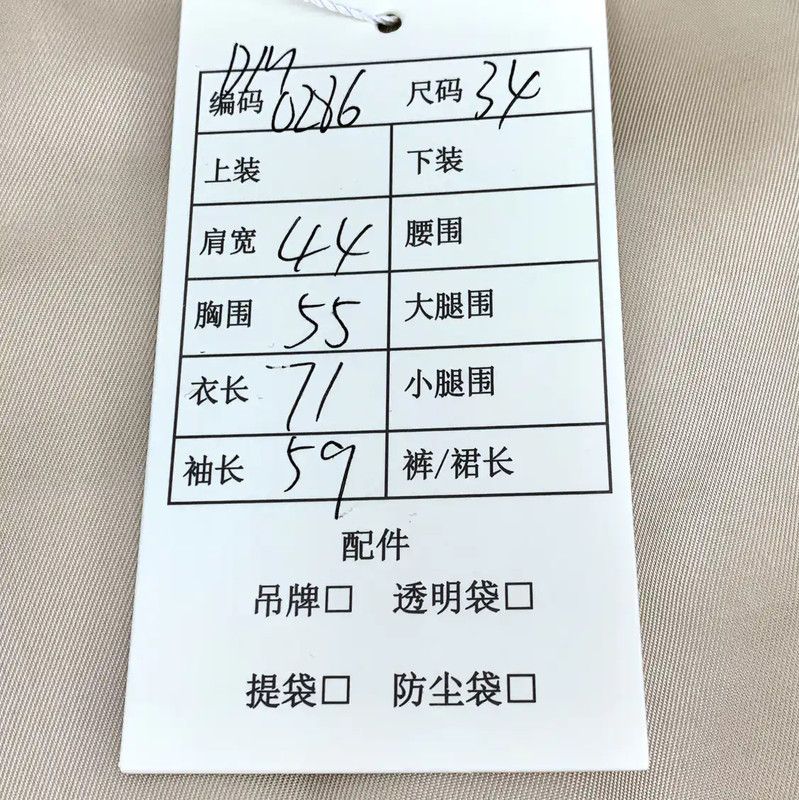 DM
编码 0286 尺码 34
上装 下装
肩宽 44 腰围
胸围 55 大腿围
衣长 71 小腿围
袖长 59 裤/裙长
配件
吊牌□ 透明袋□
提袋□ 防尘袋□